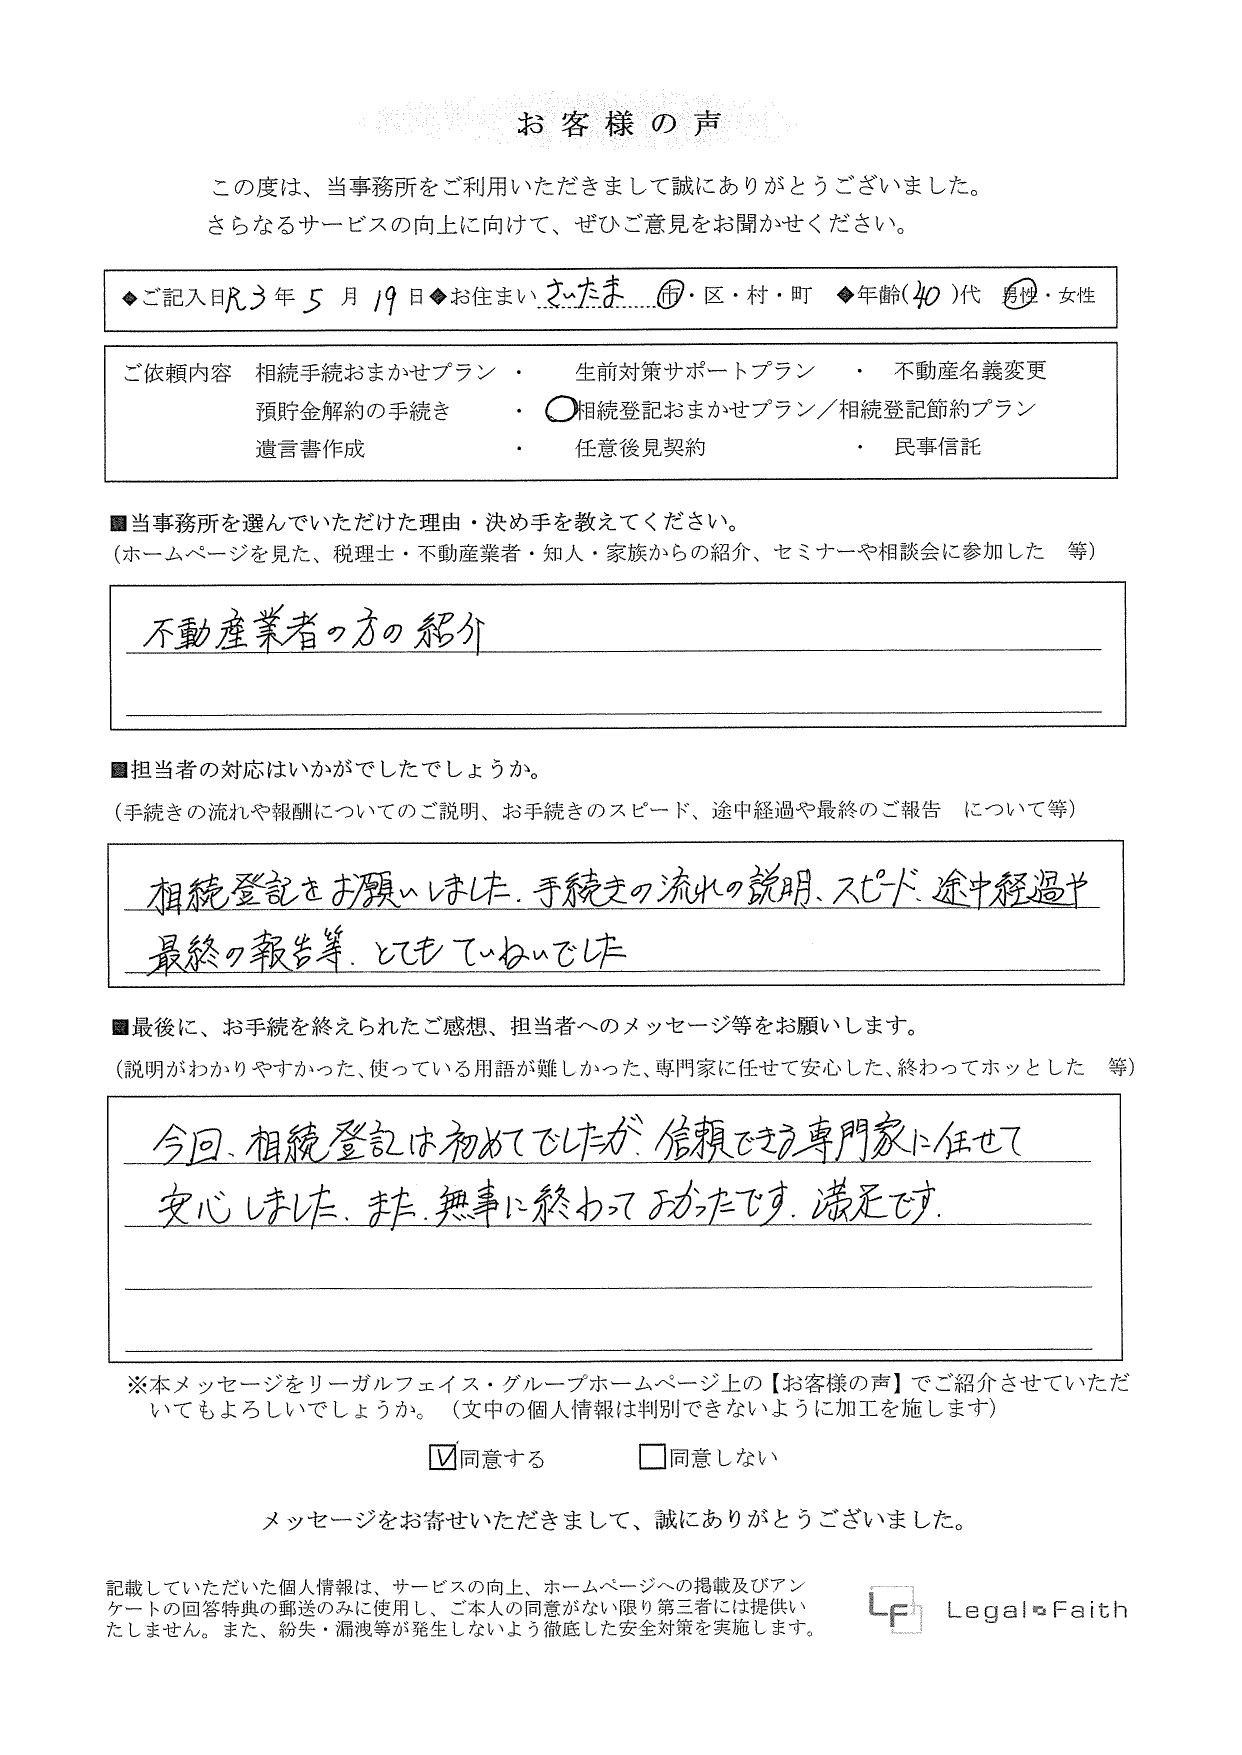 お客様の声
この度は、当事務所をご利用いただきまして誠にありがとうございました。
さらなるサービスの向上に向けて、ぜひご意見をお聞かせください。
◆ご記入日R3年5月19日◆お住まいさいたま市・区・村・町 ◆年齢(40)代 男性・女性
ご依頼内容 相続手続おまかせプラン ・ 生前対策サポートプラン ・ 不動産名義変更
預貯金解約の手続き ・ 相続登記おまかせプラン／相続登記節約プラン
遺言書作成 ・ 任意後見契約 ・ 民事信託
■当事務所を選んでいただけた理由・決め手を教えてください。
（ホームページを見た、税理士・不動産業者・知人・家族からの紹介、セミナーや相談会に参加した 等）
不動産業者の方の紹介
■担当者の対応はいかがでしたでしょうか。
（手続きの流れや報酬についてのご説明、お手続きのスピード、途中経過や最終のご報告 について等）
相続登記をお願いしました。手続きの流れの説明、スピード、途中経過や
最終の報告等、とてもていねいでした
■最後に、お手続を終えられたご感想、担当者へのメッセージ等をお願いします。
（説明がわかりやすかった、使っている用語が難しかった、専門家に任せて安心した、終わってホッとした 等）
今回、相続登記は初めてでしたが、信頼できる専門家に任せて
安心しました、また、無事に終わってよかったです。満足です。
※本メッセージをリーガルフェイス・グループホームページ上の【お客様の声】でご紹介させていただ
いてもよろしいでしょうか。（文中の個人情報は判別できないように加工を施します）
☑同意する □同意しない
メッセージをお寄せいただきまして、誠にありがとうございました。
記載していただいた個人情報は、サービスの向上、ホームページへの掲載及びアン
ケートの回答特典の郵送のみに使用し、ご本人の同意がない限り第三者には提供い
たしません。また、紛失・漏洩等が発生しないよう徹底した安全対策を実施します。
LF Legal Faith